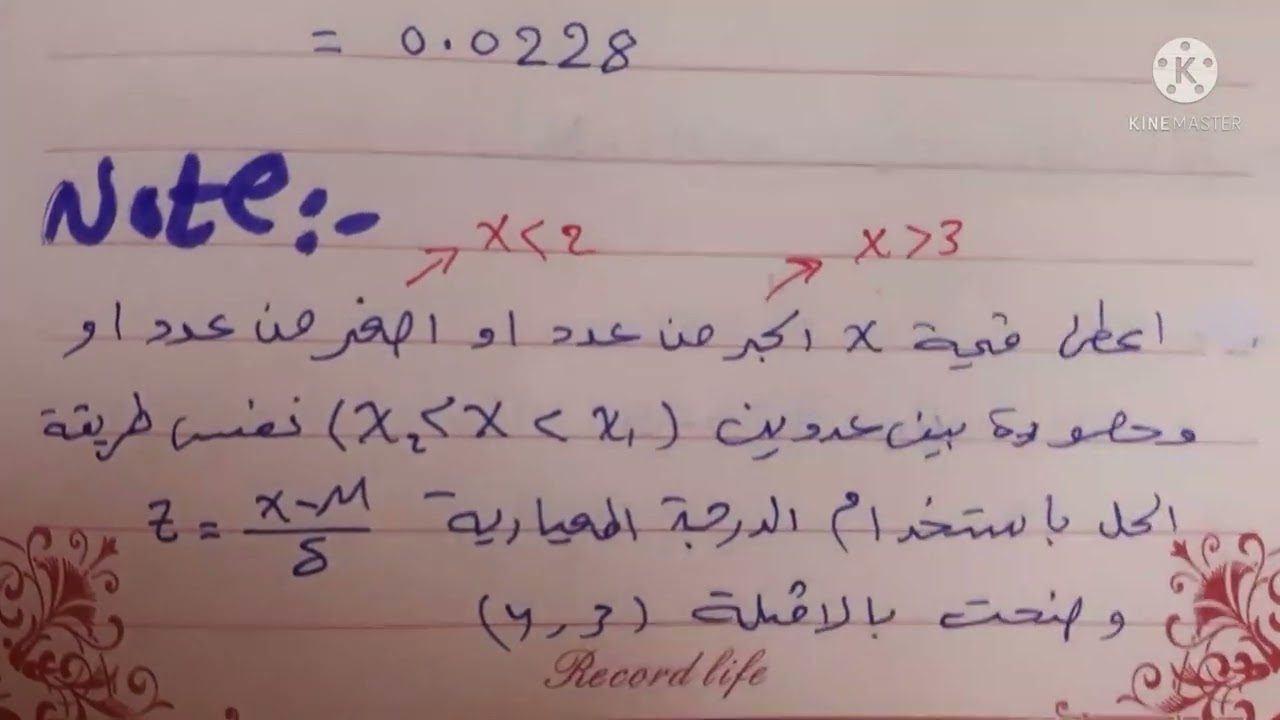 = 0.0228
KINEMASTER
Note:-
x < 2
x > 3
اعطى قيمة x اكبر من عدد او اصغر من عدد او
محصورة بين عددين (x₂ < x < x₁) نفس طريقة
الحل باستخدام الدرجة المعيارية z = (x-μ)/δ
وضحت بالامثلة (3 , 4)
Record life